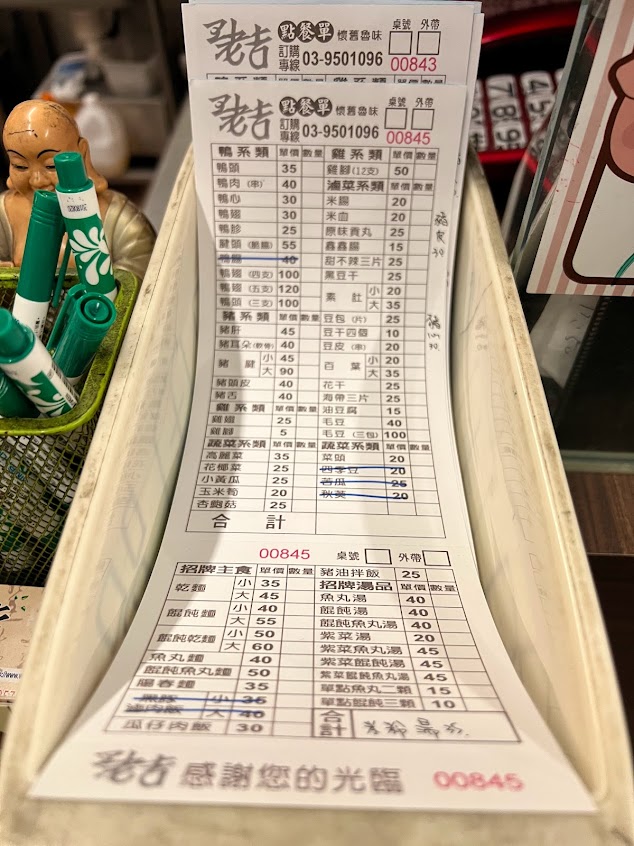 老吉 點餐單 懷舊魯味 桌號 外帶
訂購專線 03-9501096 00843
老吉 點餐單 懷舊魯味 桌號 外帶
訂購專線 03-9501096 00845
鴨系類 單價 數量 雞系類 單價 數量
鴨頭 35 雞腳(12支) 50
鴨肉(串) 40 滷菜系類 單價 數量
鴨心 30 米腸 20
鴨翅 30 米血 20
鴨胗 25 原味貢丸 25
鴨頭(脆腸) 55 鑫鑫腸 15
40 甜不辣三片 25
鴨翅(四支) 100 黑豆干 25
鴨翅(五支) 120 素肚 小 20
鴨頭(三支) 100 大 35
豬系類 單價 數量 豆包(片) 25
豬肝 45 豆干四個 10
豬耳朵(軟骨) 40 豆皮(串) 20
豬腱 小 45 百葉 小 20
大 90 大 35
豬頭皮 40 花干 25
豬舌 40 海帶三片 25
雞系類 單價 數量 油豆腐 15
雞翅 25 毛豆 40
雞腳 5 毛豆(三包) 100
蔬菜系類 單價 數量 蔬菜系類 單價 數量
高麗菜 35 菜頭 20
花椰菜 25 四季豆 20
小黃瓜 25 苦瓜 25
玉米筍 20 秋葵 20
杏鮑菇 25
合計
00845 桌號 外帶
招牌主食 單價 數量 豬油拌飯 25
乾麵 小 35 招牌湯品 單價 數量
大 45 魚丸湯 40
餛飩麵 小 40 餛飩湯 40
大 55 餛飩魚丸湯 40
餛飩乾麵 小 50 紫菜湯 20
大 60 紫菜魚丸湯 45
魚丸麵 40 紫菜餛飩湯 45
餛飩魚丸麵 50 紫菜餛飩魚丸湯 45
陽春麵 35 單點魚丸二顆 15
小 35 單點餛飩三顆 10
滷肉飯 大 40 合計
瓜仔肉飯 30
老吉 感謝您的光臨 00845